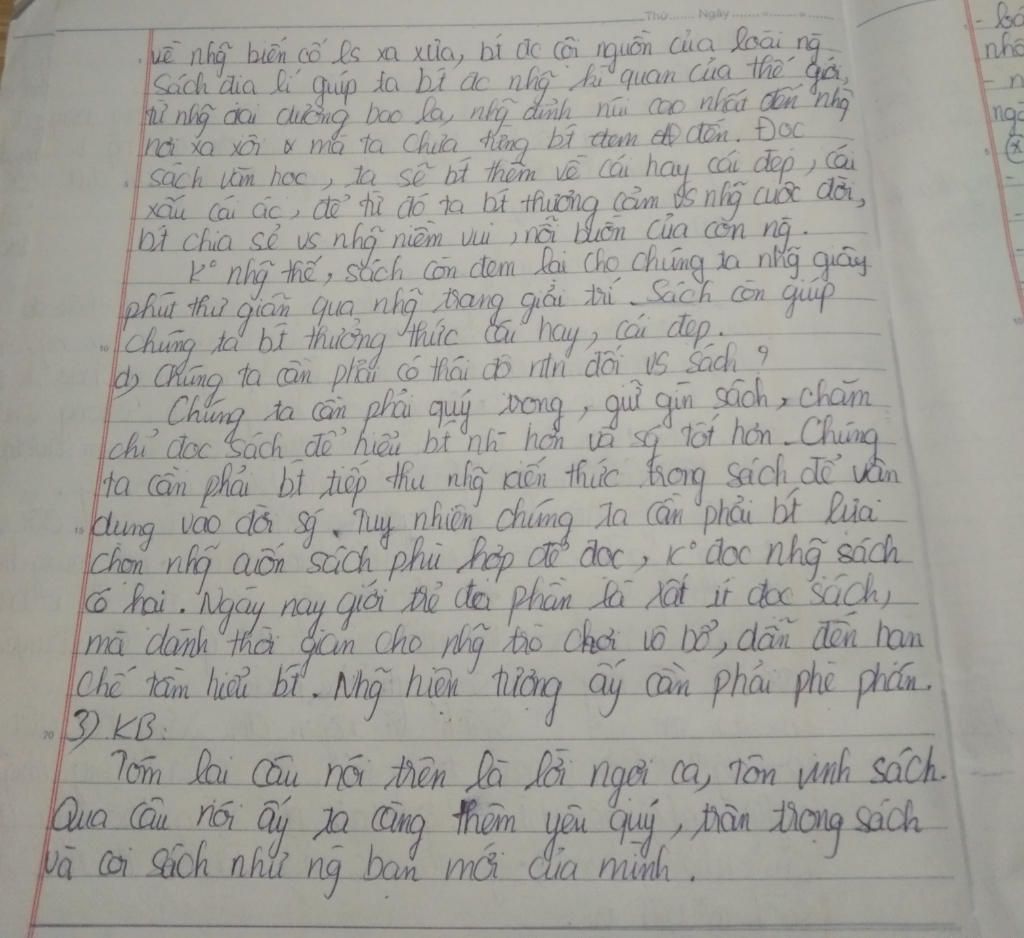 Thứ....... Ngày ...............
về nhg̃ biến cố ls xa xưa, bí đc cội nguồn của loài ng̀
Sách địa lí giúp ta bí đc nhg̃ kì quan của thế giới,
từ nhg̃ đại dương bao la, nhg̃ đỉnh núi cao nhất đến nhg̃
nơi xa xôi mà ta chưa từng bí đến. Đọc
sách văn học, ta sẽ bí thêm về cái hay cái đẹp, cái
xấu cái ác, để từ đó ta bí thương cảm vs nhg̃ cuộc đời,
bí chia sẻ vs nhg̃ niềm vui, nỗi buồn của con ng̀.
K° nhg̃ thế, sách còn đem lại cho chúng ta nhg̃ giây
phút thư giãn qua nhg̃ trang giải trí. Sách còn giúp
10 chúng ta bí thưởng thức cái hay, cái đẹp.
d) Chúng ta cần phải có thái độ ntn đối vs sách?
Chúng ta cần phải quý trọng, giữ gìn sách, chăm
chỉ đọc sách để hiểu bí nh̀ hơn và sg tốt hơn. Chúng
ta cần phải bí tiếp thu nhg̃ kiến thức trong sách để vận
15 dụng vào đời sg. Tuy nhiên chúng ta cần phải bí lựa
chọn nhg̃ cuốn sách phù hợp để đọc, K° đọc nhg̃ sách
có hại. Ngày nay giới trẻ đại phần là rất ít đọc sách,
mà dành thời gian cho nhg̃ trò chơi vô bổ, dẫn đến hạn
chế tầm hiểu bí. Nhg̃ hiện tượng ấy cần phải phê phán.
20 3) KB:
Tóm lại câu nói trên là lời ngợi ca, tôn vinh sách.
Qua câu nói ấy ta càng thêm yêu quý, trân trọng sách
và coi sách như ng̀ bạn mới của mình.